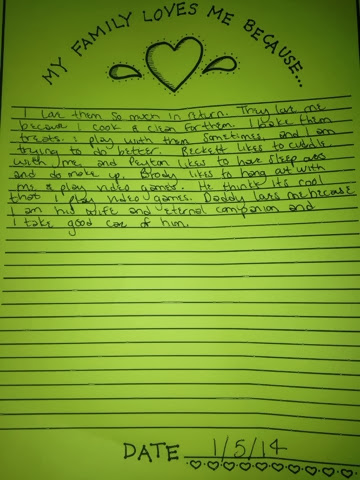 MY FAMILY LOVES ME BECAUSE...
I love them so much in return. They love me
because I cook & clean for them. I bake them
treats. I play with them sometimes, and I am
trying to do better. Beckett likes to cuddle
with me, and Peyton likes to have sleep overs
and do make up. Brody likes to hang out with
me & play video games. He thinks it's cool
that I play video games. Daddy loves me because
I am his wife and eternal companion and
I take good care of him.
DATE 1/5/14